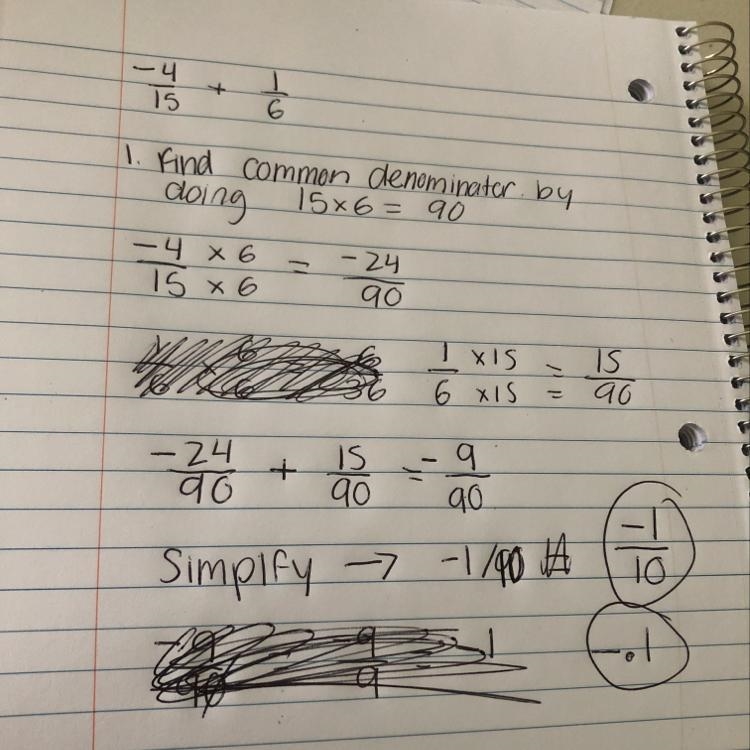 -4/15 + 1/6
1. Find common denominator by
doing 15×6 = 90
-4 × 6 / 15 × 6 = -24/90
1 ×15 / 6 ×15 = 15/90
-24/90 + 15/90 = -9/90
Simplfy → -1/
-1/10
-.1